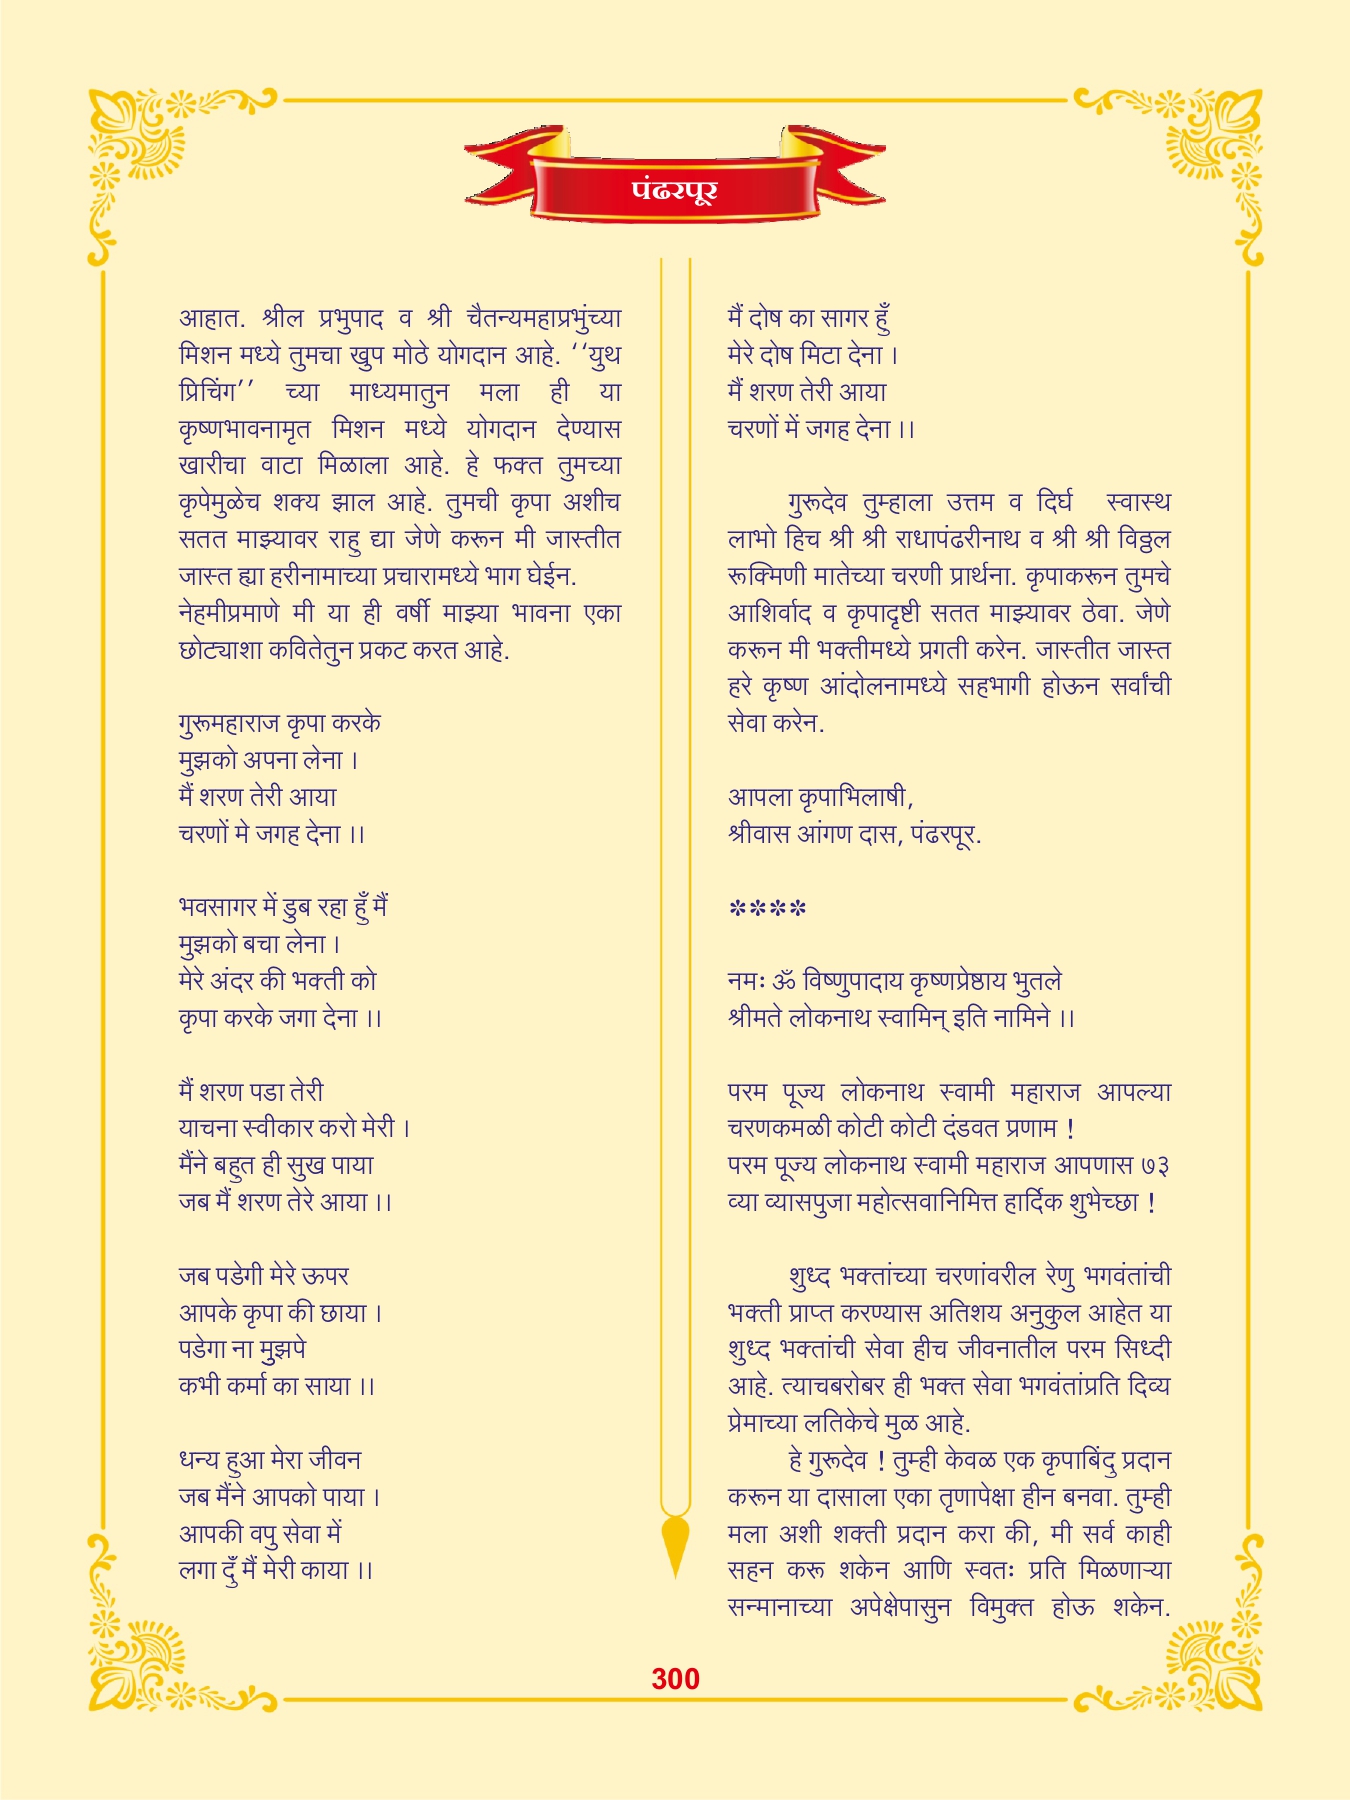 पंढरपूर
आहात. श्रील प्रभुपाद व श्री चैतन्यमहाप्रभुंच्या
मिशन मध्ये तुमचा खुप मोठे योगदान आहे. ‘‘युथ
प्रिचिंग’’ च्या माध्यमातुन मला ही या
कृष्णभावनामृत मिशन मध्ये योगदान देण्यास
खारीचा वाटा मिळाला आहे. हे फक्त तुमच्या
कृपेमुळेच शक्य झाल आहे. तुमची कृपा अशीच
सतत माझ्यावर राहु द्या जेणे करून मी जास्तीत
जास्त ह्या हरीनामाच्या प्रचारामध्ये भाग घेईन.
नेहमीप्रमाणे मी या ही वर्षी माझ्या भावना एका
छोट्याशा कवितेतुन प्रकट करत आहे.
गुरूमहाराज कृपा करके
मुझको अपना लेना ।
मैं शरण तेरी आया
चरणों मे जगह देना ।।
भवसागर में डुब रहा हुँ मैं
मुझको बचा लेना ।
मेरे अंदर की भक्ती को
कृपा करके जगा देना ।।
मैं शरण पडा तेरी
याचना स्वीकार करो मेरी ।
मैंने बहुत ही सुख पाया
जब मैं शरण तेरे आया ।।
जब पडेगी मेरे ऊपर
आपके कृपा की छाया ।
पडेगा ना मुझपे
कभी कर्मा का साया ।।
धन्य हुआ मेरा जीवन
जब मैंने आपको पाया ।
आपकी वपु सेवा में
लगा दुँ मैं मेरी काया ।।
मैं दोष का सागर हुँ
मेरे दोष मिटा देना ।
मैं शरण तेरी आया
चरणों में जगह देना ।।
गुरूदेव तुम्हाला उत्तम व दिर्घ स्वास्थ
लाभो हिच श्री श्री राधापंढरीनाथ व श्री श्री विठ्ठल
रूक्मिणी मातेच्या चरणी प्रार्थना. कृपाकरून तुमचे
आशिर्वाद व कृपादृष्टी सतत माझ्यावर ठेवा. जेणे
करून मी भक्तीमध्ये प्रगती करेन. जास्तीत जास्त
हरे कृष्ण आंदोलनामध्ये सहभागी होऊन सर्वांची
सेवा करेन.
आपला कृपाभिलाषी,
श्रीवास आंगण दास, पंढरपूर.
****
नमः ॐ विष्णुपादाय कृष्णप्रेष्ठाय भुतले
श्रीमते लोकनाथ स्वामिन् इति नामिने ।।
परम पूज्य लोकनाथ स्वामी महाराज आपल्या
चरणकमळी कोटी कोटी दंडवत प्रणाम !
परम पूज्य लोकनाथ स्वामी महाराज आपणास ७३
व्या व्यासपुजा महोत्सवानिमित्त हार्दिक शुभेच्छा !
शुध्द भक्तांच्या चरणांवरील रेणु भगवंतांची
भक्ती प्राप्त करण्यास अतिशय अनुकुल आहेत या
शुध्द भक्तांची सेवा हीच जीवनातील परम सिध्दी
आहे. त्याचबरोबर ही भक्त सेवा भगवंतांप्रति दिव्य
प्रेमाच्या लतिकेचे मुळ आहे.
हे गुरूदेव ! तुम्ही केवळ एक कृपाबिंदु प्रदान
करून या दासाला एका तृणापेक्षा हीन बनवा. तुम्ही
मला अशी शक्ती प्रदान करा की, मी सर्व काही
सहन करू शकेन आणि स्वतः प्रति मिळणाऱ्या
सन्मानाच्या अपेक्षेपासुन विमुक्त होऊ शकेन.
300